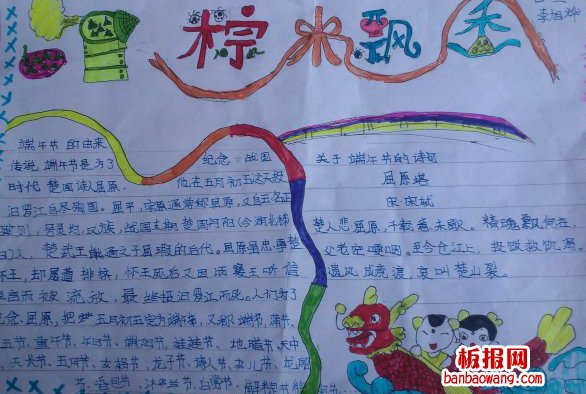 柠水飘香
李旭烨
端午节的由来
传说,端午节是为了纪念战国
时代楚国诗人屈原,他在五月初五这天投
汨罗江自尽殉国。屈平,字原,通常称屈原,又自云名正
则,号灵均,汉族,战国末期楚国丹阳(今湖北秭
归)人,楚武王熊通之子屈瑕的后代。屈原虽忠事楚
怀王,却屡遭排挤,怀王死后又因顷襄王听信
谗言而被流放,最终投汨罗江而死。人们为了
纪念屈原,把五月初五定为端午节,又称端节、蒲节、
五节、重午节、午日节、端阳节、娃娃节、地腊节、天中
天长节、五月节、女娲节、龙子节、诗人节、女儿节、龙
节、香包节、沐兰节、白赏节、解粽节
关于端午节的诗句
屈原塔
宋·宋斌
楚人悲屈原,千载意未歇。精魂飘何在,
父老空哽咽。至今仓江上,投饭救饥渴。
遗风成竞渡,哀叫楚山裂。
板报网
banbaowang.com